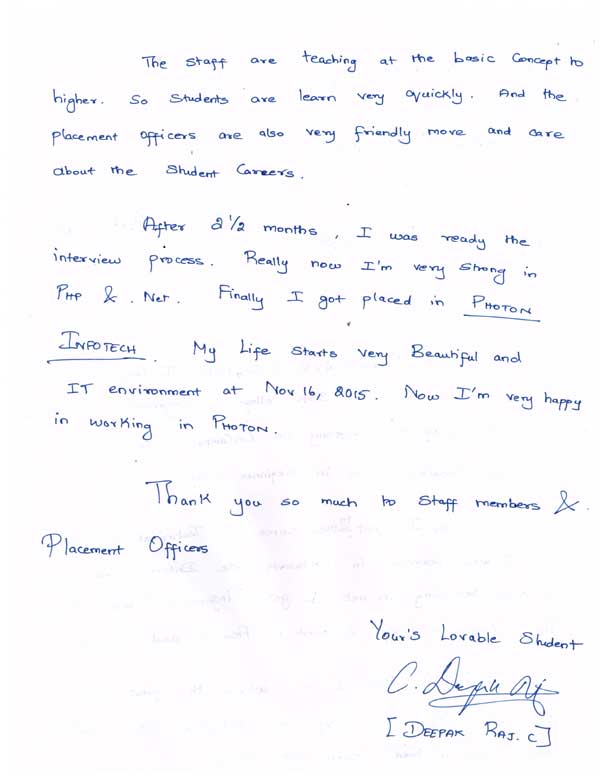 The staff are teaching at the basic Concept to
higher. So Students are learn very quickly. And the
placement officers are also very friendly move and care
about the Student Careers.
After 2 1/2 months, I was ready the
interview process. Really now I'm very strong in
PHP & .Net. Finally I got placed in PHOTON
INFOTECH. My Life starts very Beautiful and
IT environment at Nov 16, 2015. Now I'm very happy
in working in PHOTON.
Thank you so much to staff members &.
Placement Officers
Your's Lovable Student
C. Deepak Raj
[DEEPAK RAJ. C]